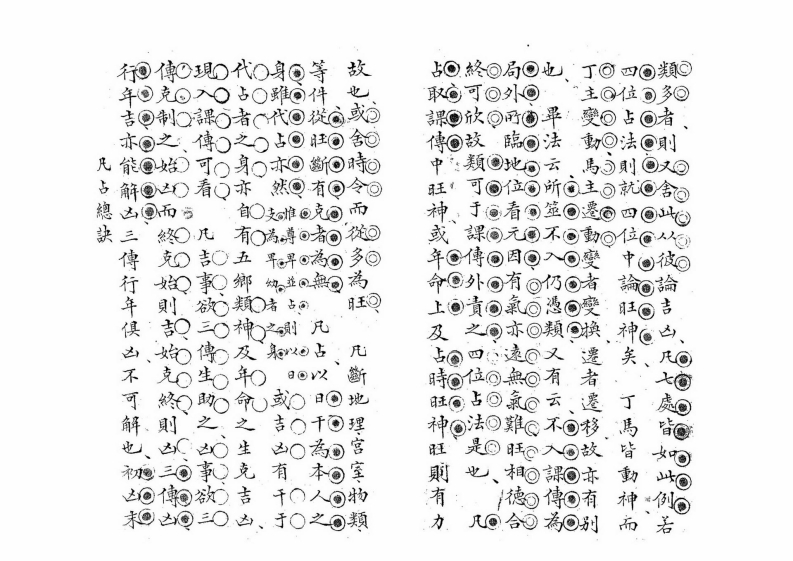 類多者則又舍此以彼論吉凶凡七處皆如此例若
四位占法則就四位中論旺神矣　丁馬皆動神而
丁主變動馬主遷動變者變換遷者遷移故亦有別
也　畢法云所筮不入仍憑類又有云不入課傳為
局外所臨地位看元因有氣亦遠無氣難旺相德合
終可欣故類可于課傳外責之四位占法是也　凡
占取課傳中旺神或年命上及占時旺神旺則有力
故也或舍時令而從多為旺　凡斷地理宮室物類
等件從旺斷有克者為無　凡占以日干為本人之
身雖代占亦然惟尊卑並占則以日支為卑幼者之身　或吉凶有干于
代占者之身亦自有五鄉類神及年命之生克吉凶
現入課傳可看　凡吉事欲三傳生助之凶事欲三
傳克制之始凶而終克始則吉始克終則凶三傳凶
行年吉亦能解凶三傳行年俱凶不可解也初凶末
凡占總訣